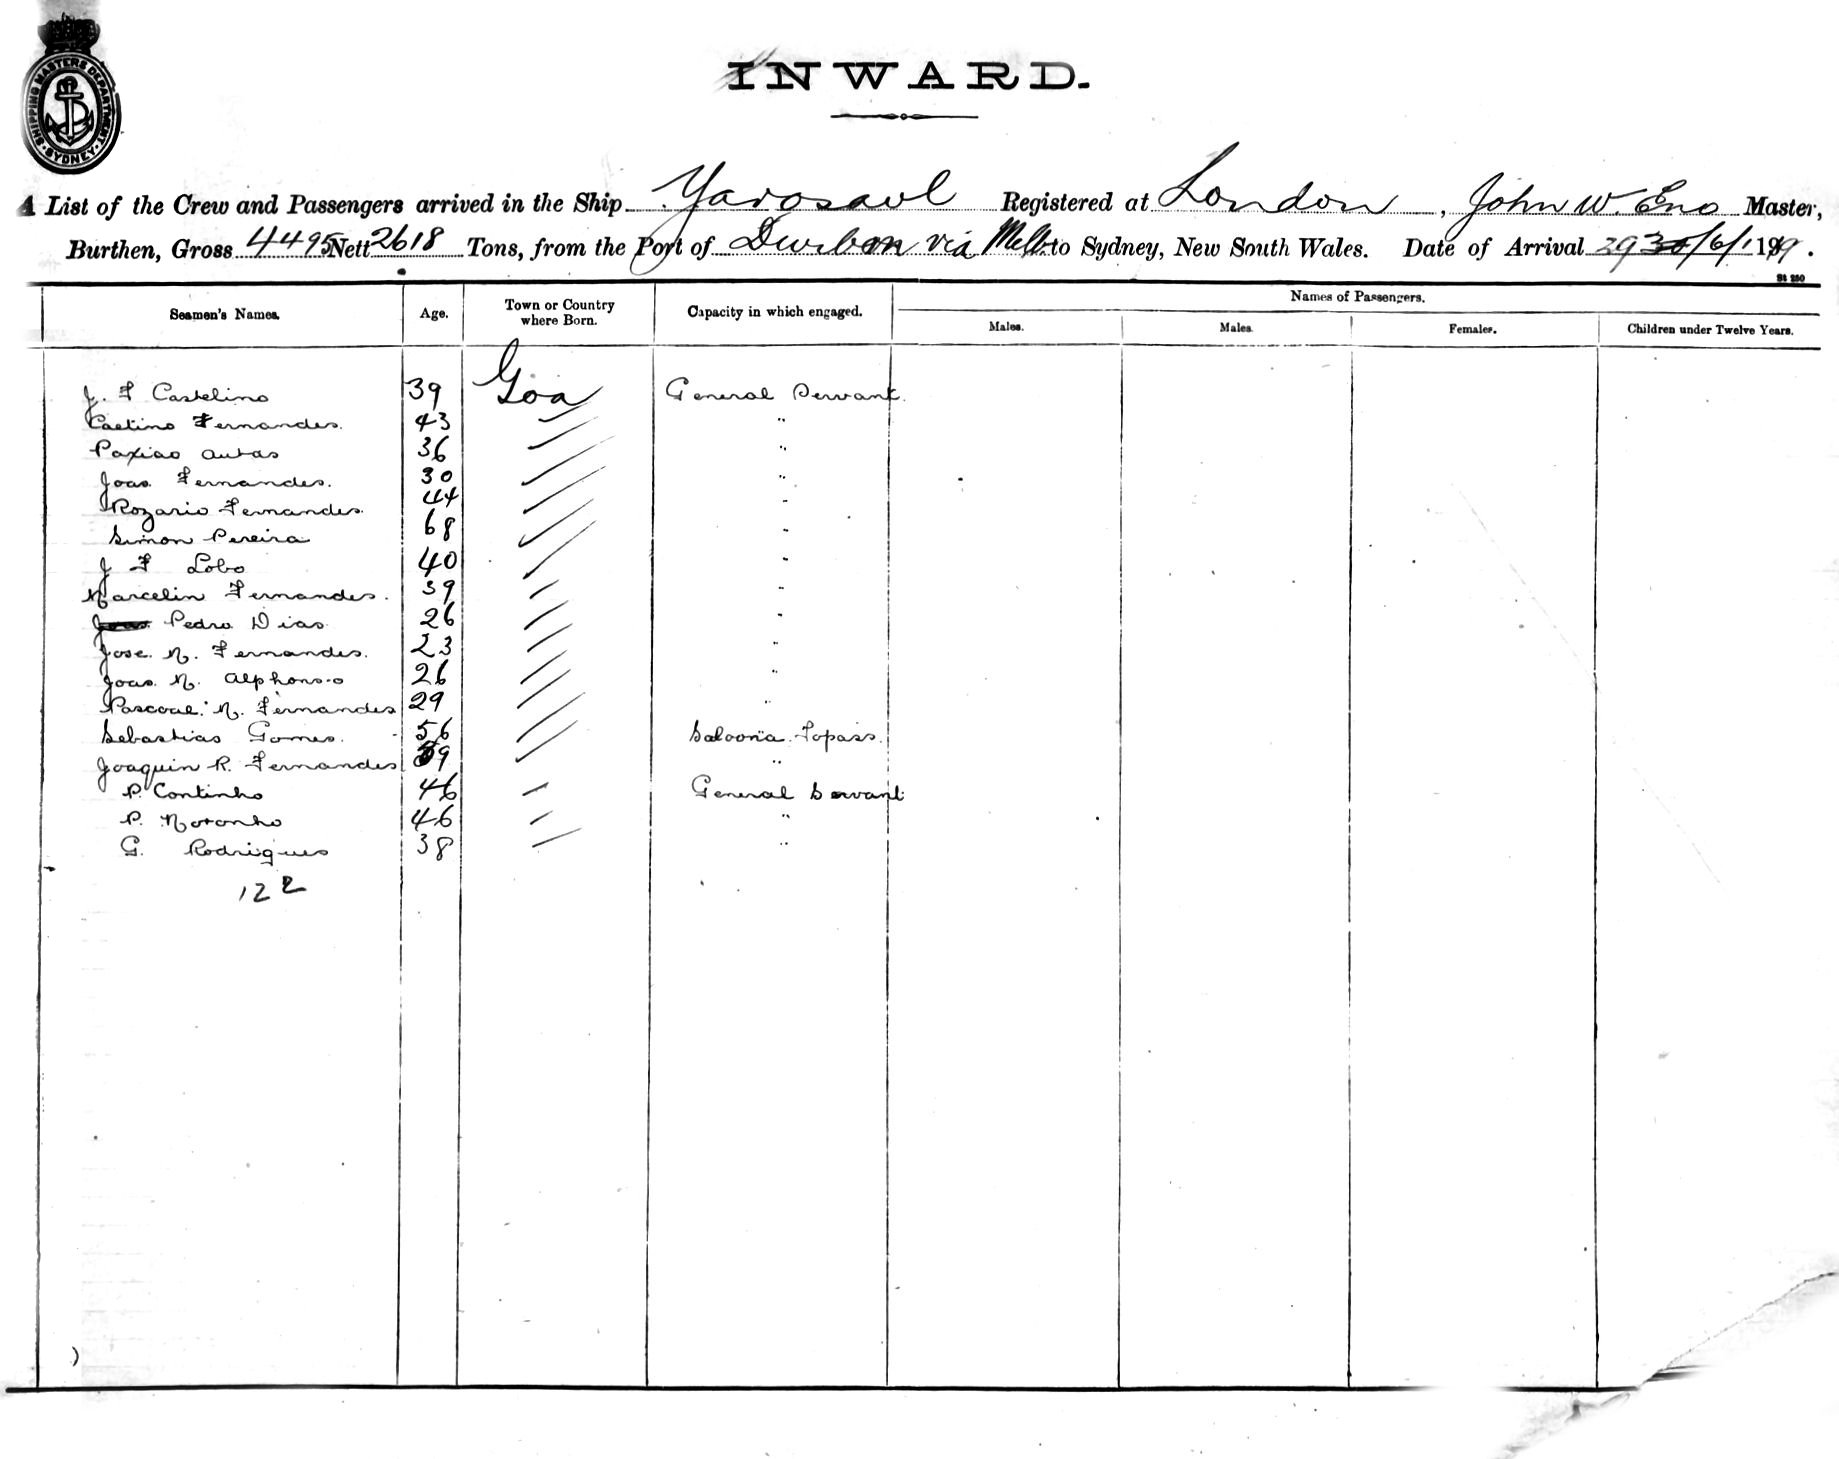 SHIPPING MASTERS DEPARTMENT
SYDNEY
INWARD.
A List of the Crew and Passengers arrived in the Ship Yarosavl Registered at London, John W. Eno Master,
Burthen, Gross 4495 Nett 2618 Tons, from the Port of Durban via Melb. to Sydney, New South Wales. Date of Arrival 29 30/6/1919.
St 250
Seamen's Names. Age. Town or Country where Born. Capacity in which engaged. Names of Passengers.
Males. Males. Females. Children under Twelve Years.
J. F Castelino 39 Goa General Servant.
Caetino Fernandes. 43 "
Paxiao 36 "
Joao Fernandes. 30 "
Rozario Fernandes. 44 "
Simon Pereira 68 "
J F Lobo 40 "
Marcelin Fernandes. 39 "
Pedro Dias 26 "
Jose. M. Fernandes. 23 "
Joao. M. Alphonso 26 "
Pascoal. M. Fernandes 29 "
Sebastiao Gomes. 56 Topass.
Joaquin R. Fernandes 39 "
P. Continho 46 General Servant
P. Noronho 46 "
G. Rodrigues 38 "
122